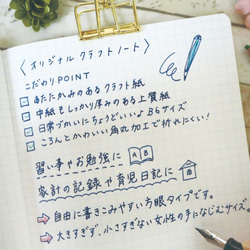 〈オリジナル クラフトノート〉
こだわりPOINT
☑ あたたかみのあるクラフト紙
☑ 中紙もしっかり厚みのある上質紙
☑ 日常づかいにちょうどいい♪ B6サイズ
☑ ころんとかわいい角丸加工で折れにくい!
習い事やお勉強に
家計の記録や育児日記に
⇨ 自由に書きこみやすい方眼タイプです。
⇨ 大きすぎず、小さすぎない女性の手になじむサイズ。